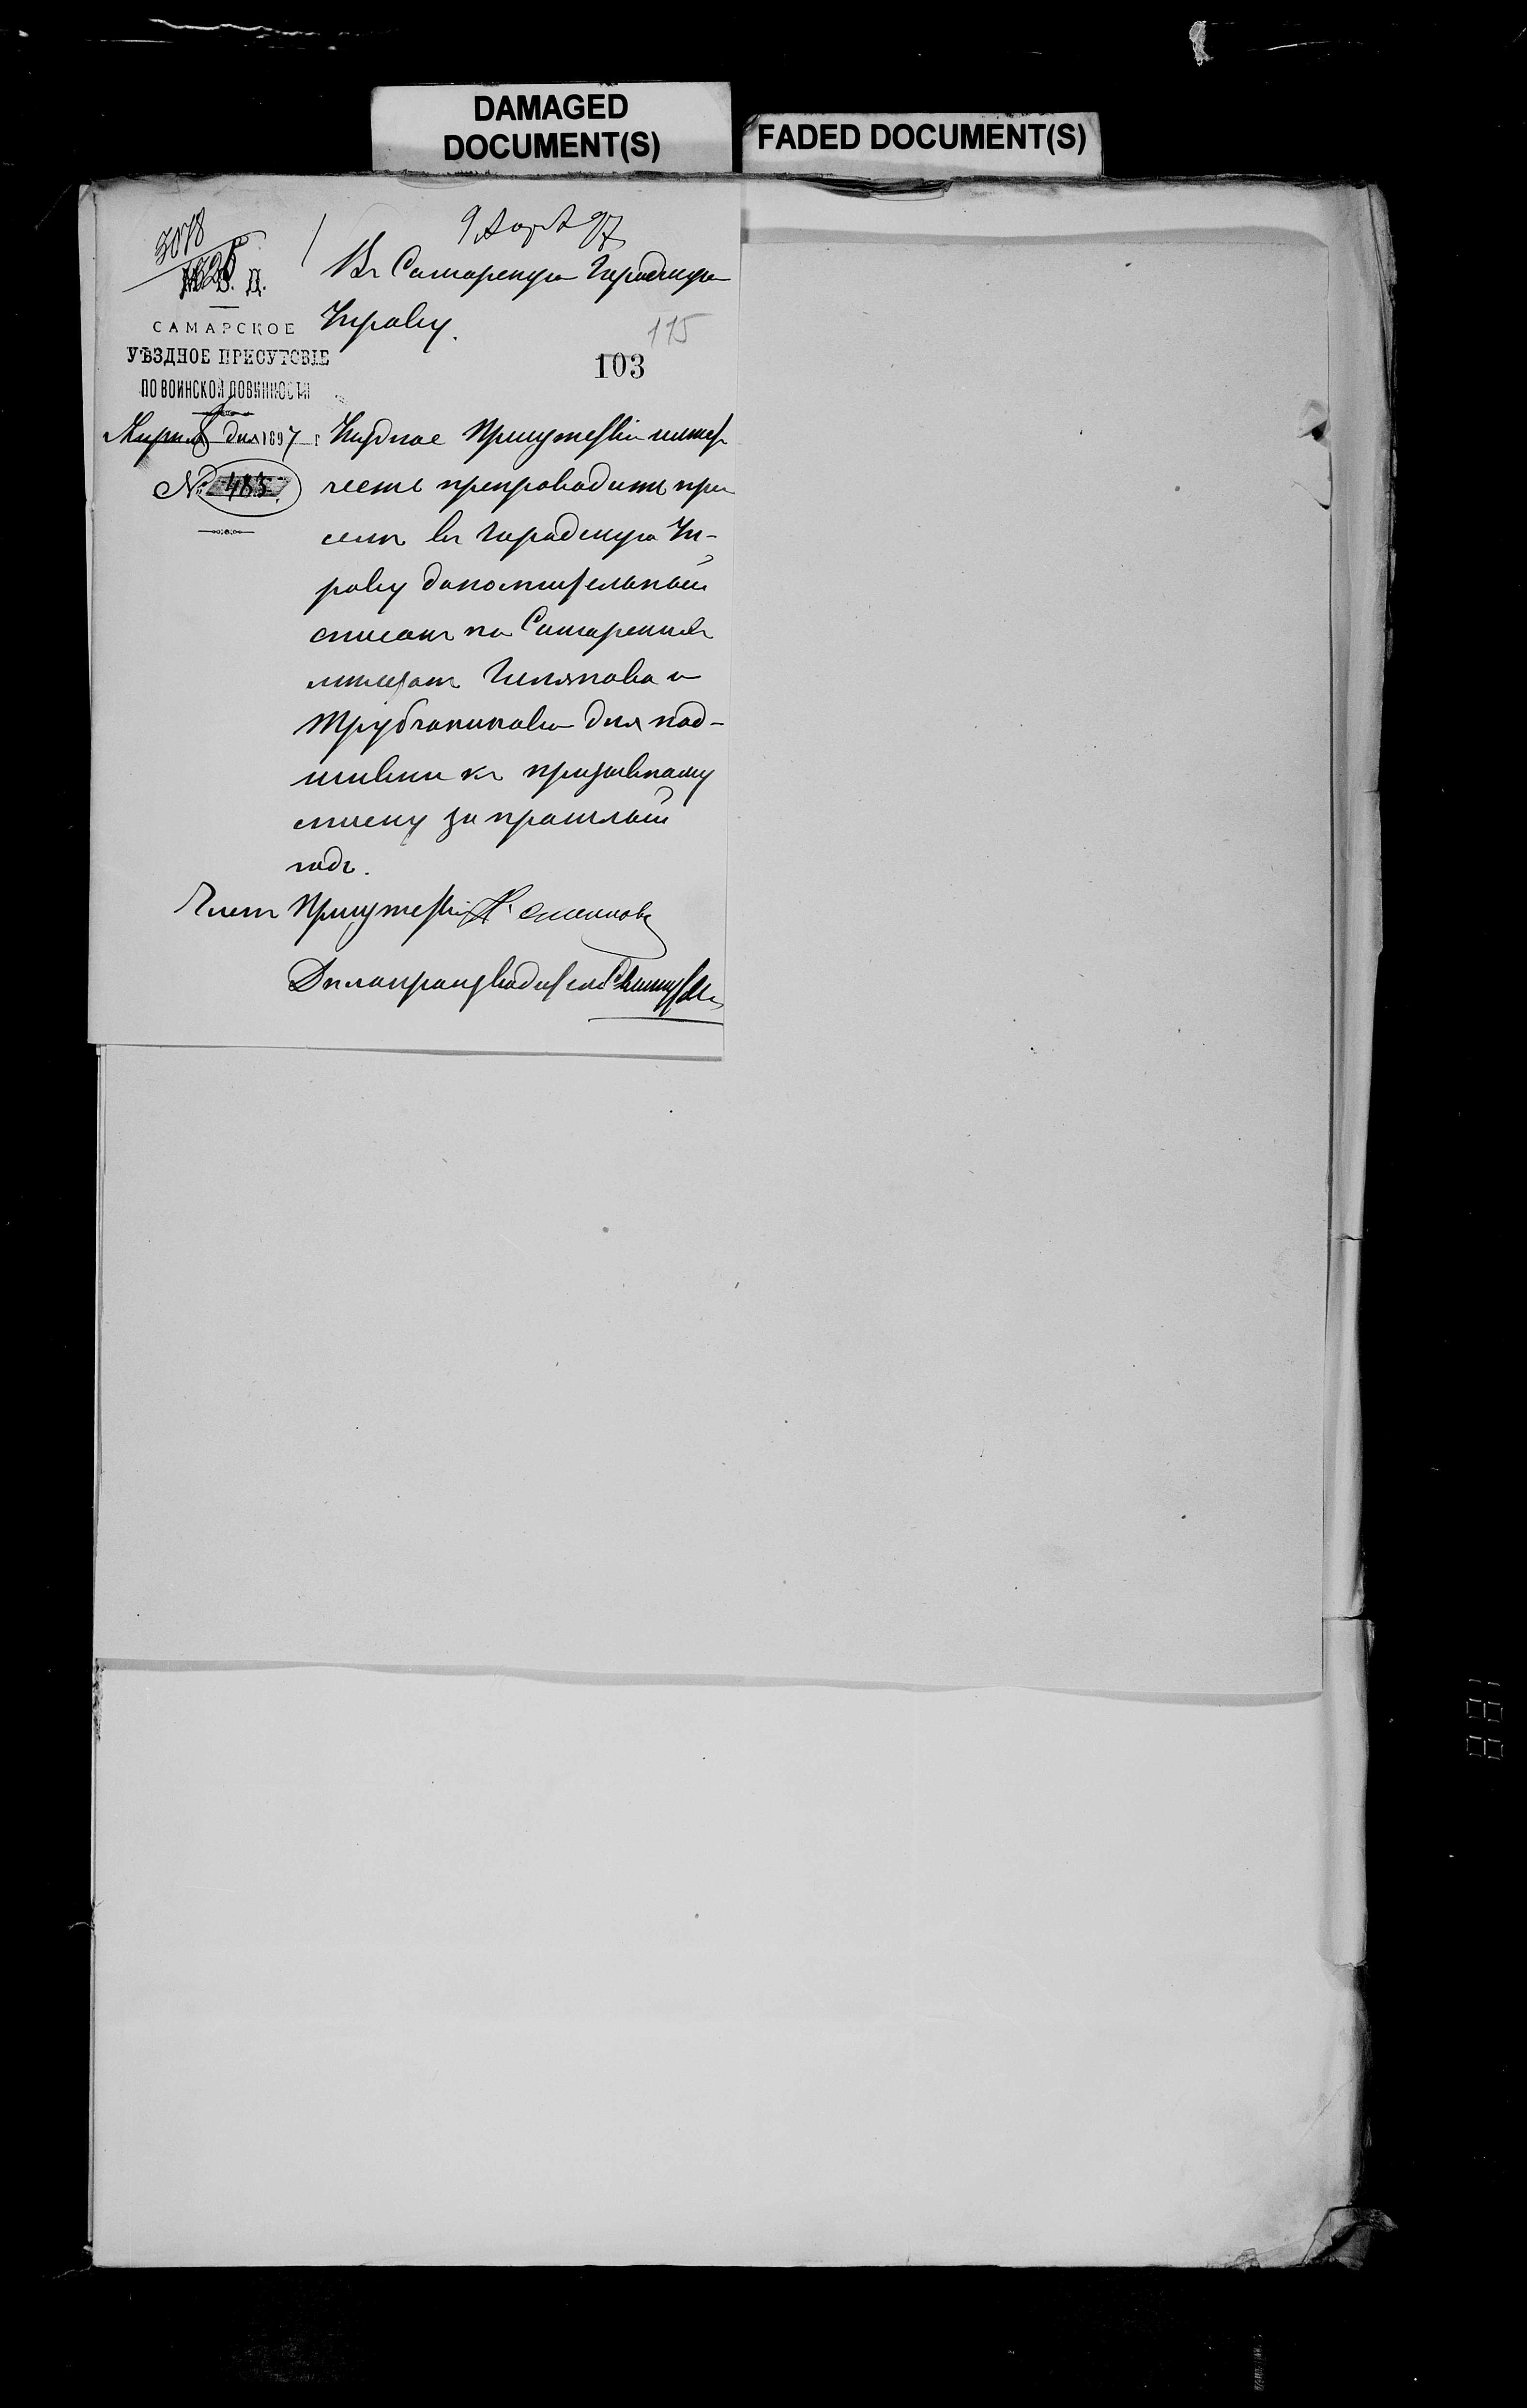 DAMAGED
DOCUMENT(S)
FADED DOCUMENT(S)
3078
9 Апр 97
М. В. Д.
САМАРСКОЕ
УѢЗДНОЕ ПРИСУТСВІЕ
ПО ВОИНСКОЙ ПОВИННОСТИ
Апрѣля 8 дня 1897 г
№ 485
Въ Самарскую Городскую
Управу.
115
103
Уѣздное Присутствіе имѣетъ
честь препроводить при
семъ въ Городскую Уп-
раву дополнительный
списокъ на Самарскихъ
мѣщанъ и
Трубчанинова для под-
шивки къ призывному
списку за прошлый
годъ.
Членъ Присутствія
Дѣлопроизводитель
188